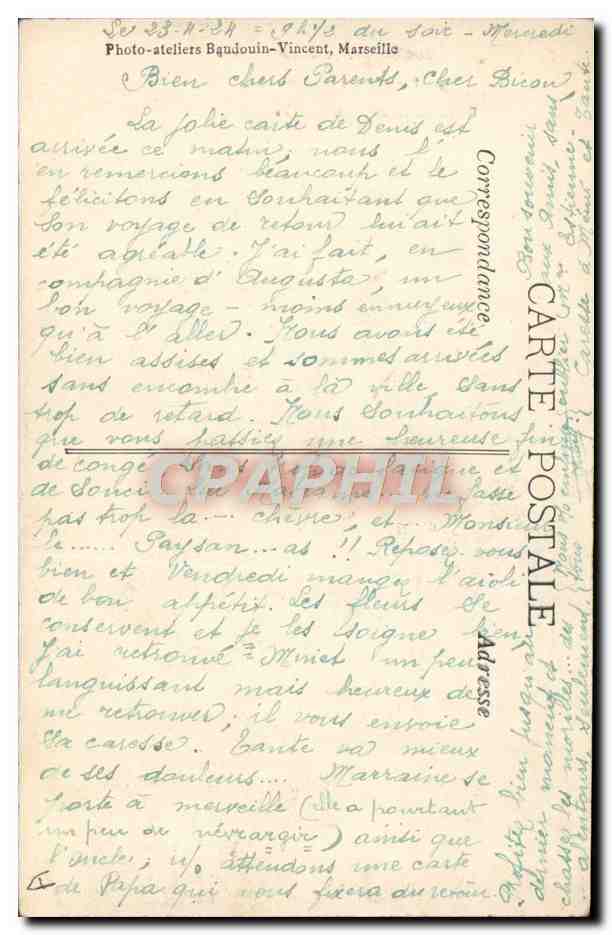 Le 23-4-24 = 9h 1/2 du soir - Mercredi
Photo-ateliers Baudouin-Vincent, Marseille
Bien chers Parents, Cher Bicou
La jolie carte de Denis est
arrivée ce matin, nous l'
en remercions beaucoup et le
félicitons en souhaitant que
son voyage de retour lui ait
été agréable. J'ai fait, en
compagnie d'Augusta, un
bon voyage - moins ennuyeux
qu'à l'aller. Nous avons été
bien assises et sommes arrivées
sans encombre à la ville, sans
trop de retard. Nous souhaitons
que vous passiez une heureuse fin
de congé fatigue et
de soucis fasse
pas trop la ... chèvre, et ... Monsieur
le ...... Paysan ... as !! Reposez vous
bien et Vendredi mangez l'aïoli
de bon appétit. Les fleurs se
conservent et je les soigne bien,
J'ai retrouvé "Minet" un peu
languissant mais heureux de
me retrouver; il vous envoie
sa caresse. Tante va mieux
de ses douleurs .... Marraine se
porte à merveille (elle a pourtant
un peu de névrargir) ainsi que
l'oncle; n/s attendons une carte
de Papa qui nous fixera du revoir.
CARTE POSTALE
Correspondance
Adresse
CPAPHIL
Profitez bien jusqu'au
dernier moment et
chassez les morilles... des
alentours, seulement.
Bon souvenir
aux Amis, sans
Mr Estienne -
tous
Caresse à Mimi et Tante.